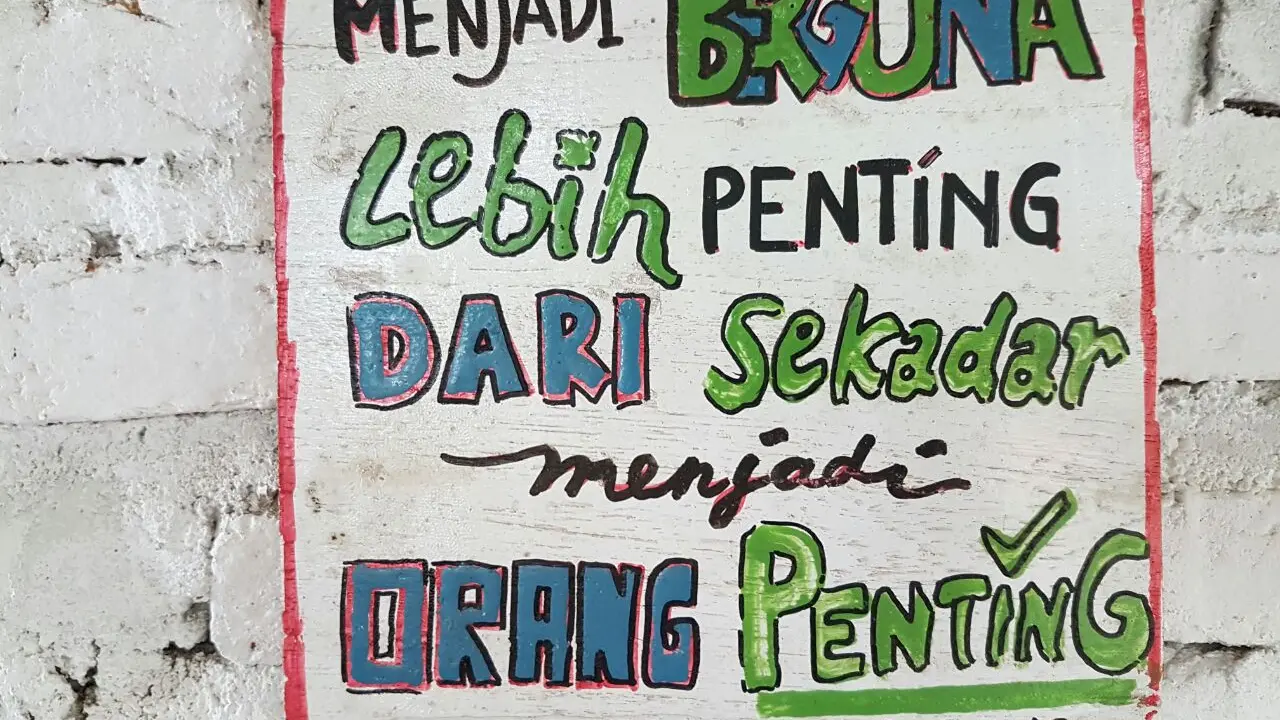 MENJADI BERGUNA
Lebih PENTING
DARI Sekadar
menjadi
ORANG PENTING